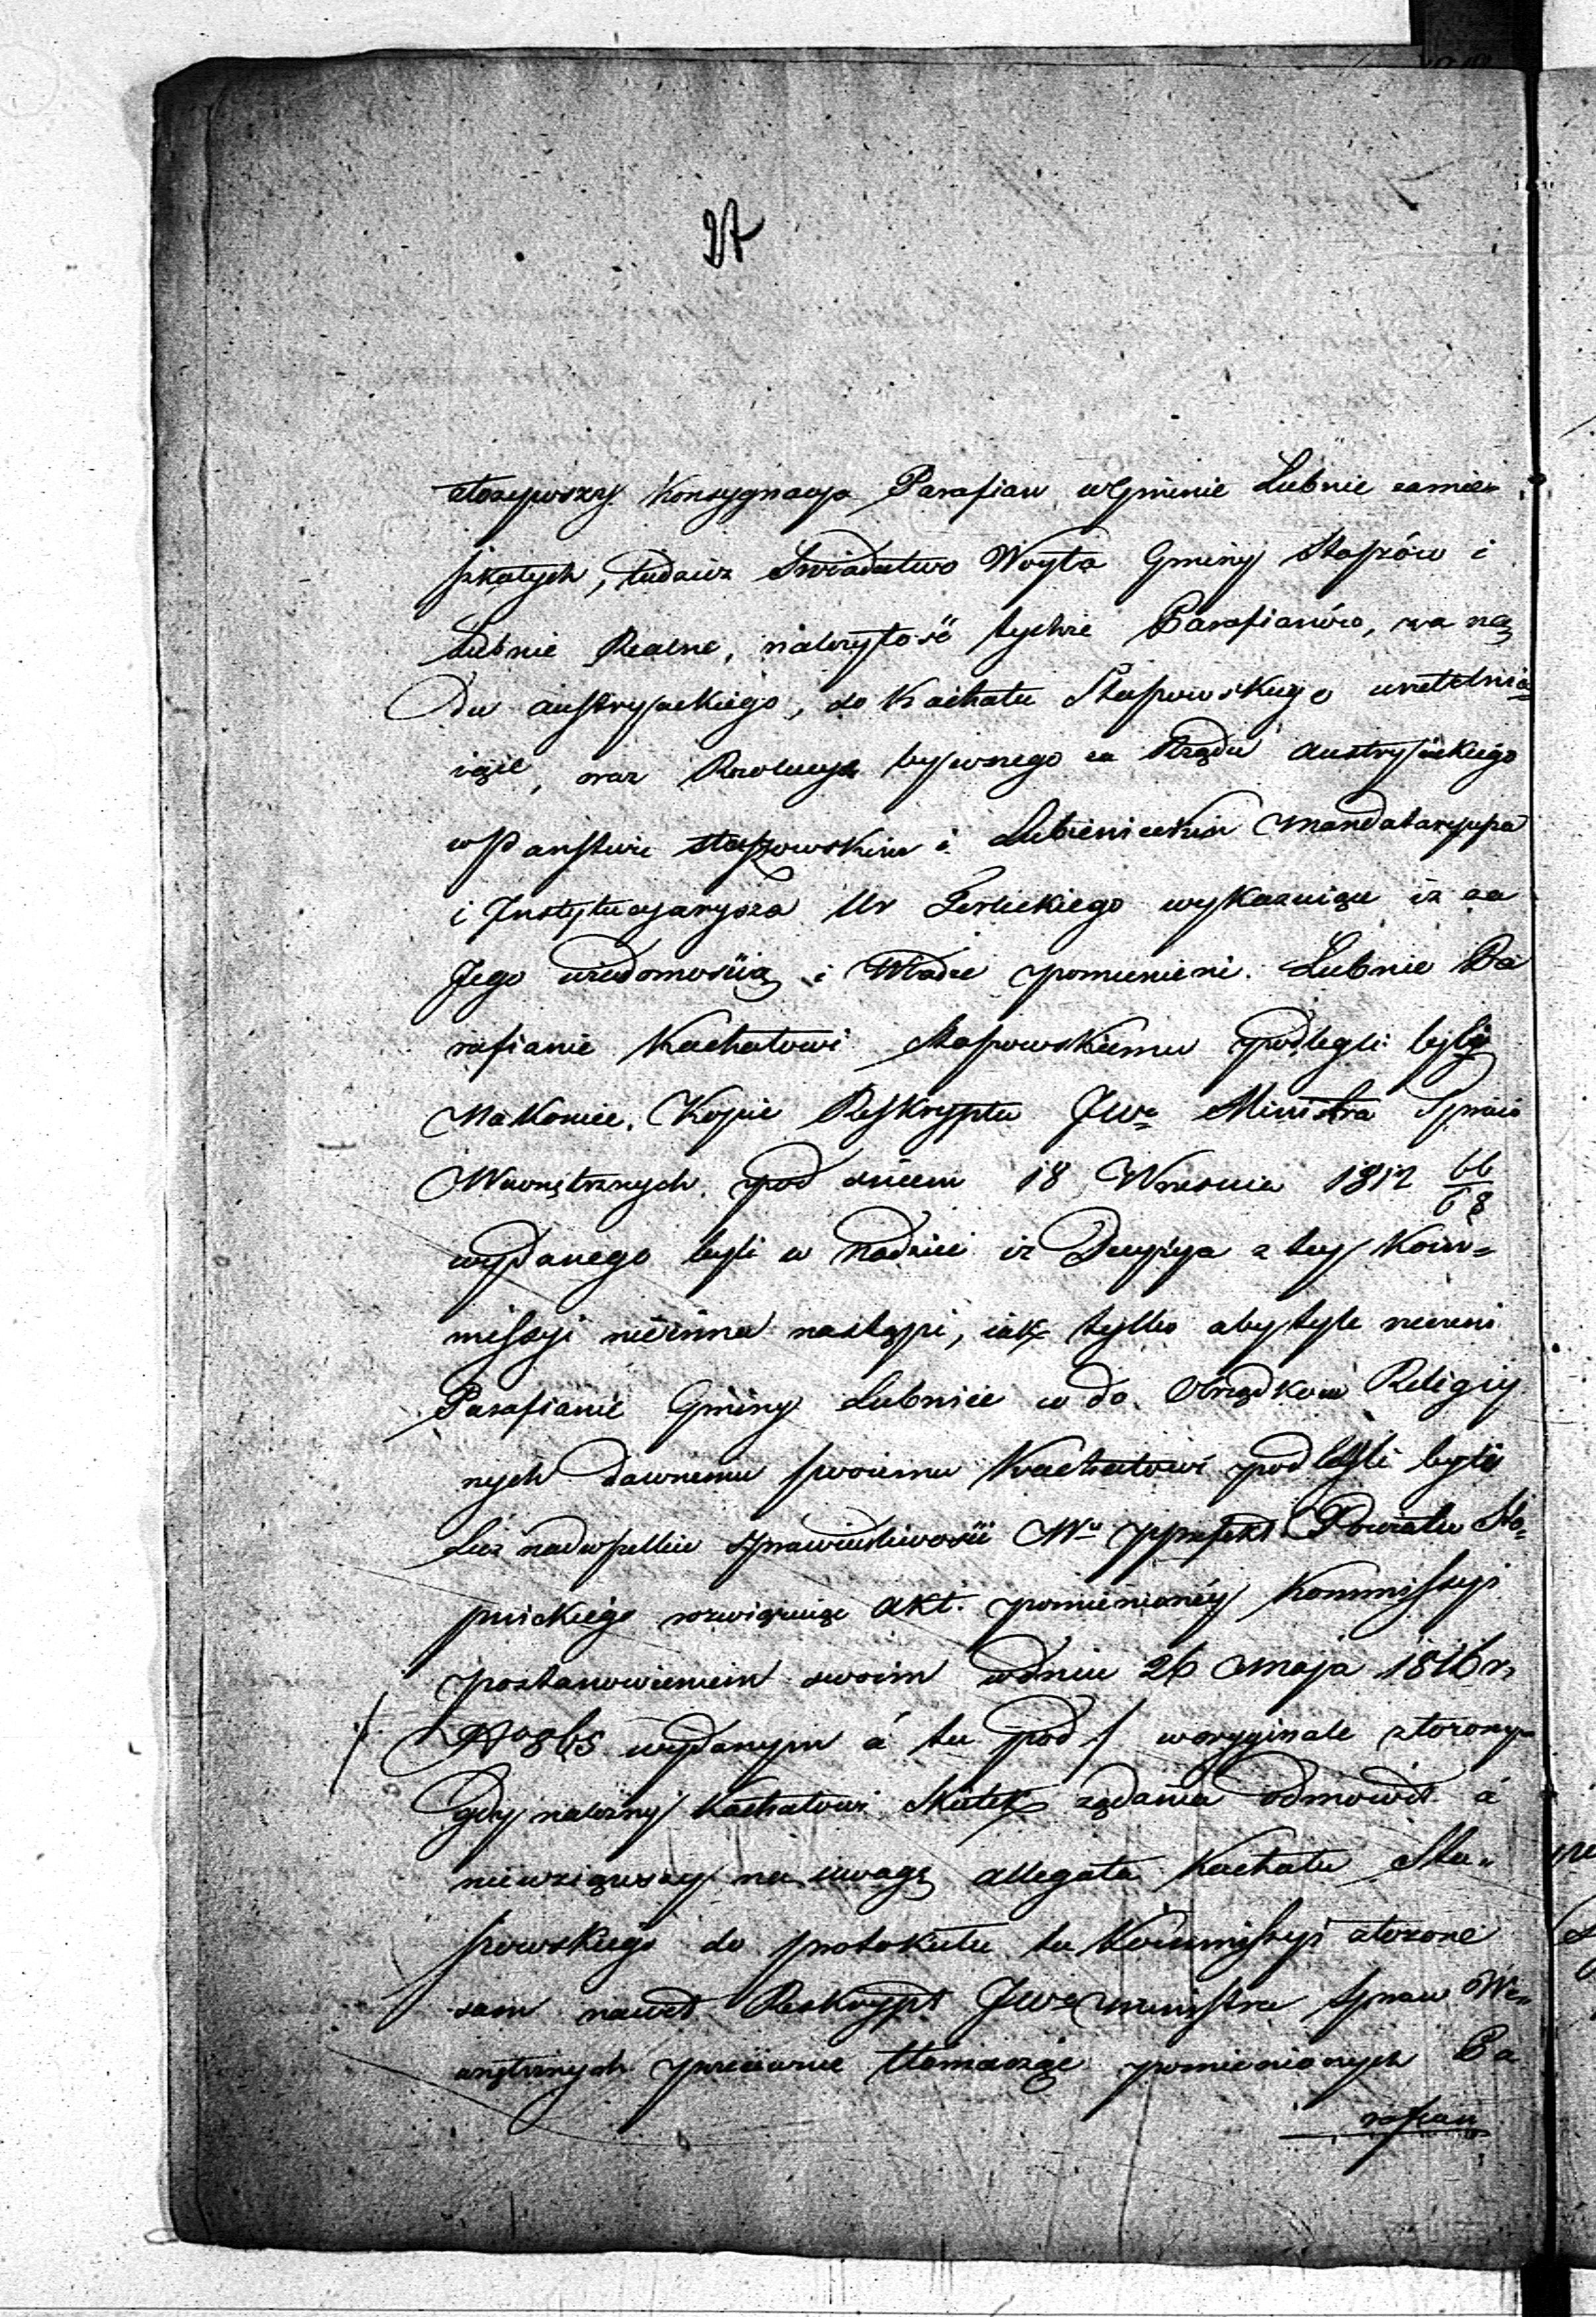 27
złożywszy Konsygnacyą Parafian w Gminie Łubnie zamie-
szkałych, tudzież Swiadectwo Woyta Gminy Staszów i
Łubnie Realne, należytość tychże Parafianów, za rzą
du austryackiego, do Kachału Staszowskiego uzetelnia-
iące, oraz Rezolucyą bywszego za Rządu Austryackiego
w Państwie Staszowskim i Łubienieckim Mandataryusza
i Justytucyaryusza Ur Terlickiego wykazuiącą iż za
Jego wiadomością i Władze pomienieni Łubnie Pa
rafianie Kachałowi Staszowskiemu podlegli byli
Nakoniec, Kopie Reskryptu JWo Ministra Spraw
Wewnętrznych pod dniem 18 Wresnia 1812 66/68
wydanego byli w nadziei iż Decyzya z tey Kom-
missyi nieinna nastąpi, iak tylko aby tyle rzeczeni
Parafianie Gminy Łubnice w do Obrządkow Religiy
nych dawnemu swoiemu Kachałowi podlegli byli
Lecz nadwszelkie sprawiedliwości Wy pprefekt Powiatu Sto-
pnickiego rozwiązuiąc akt pomienioney Kommissyi
postanowieniem swoim w dniu 26 Maja 1816 r.
./. No 865 wydanym á tu pod ./. w oryginale złożony-
Gdy należny Kachałowi Skutek żądania odmowił á
niewziąwszy na uwagę allegata Kachału Sta-
szowskiego do protokułu tu Kommissyi złożone
sam nawet Reskrypt JWo Ministra Spraw We-
wnętrznych przeciwnie tłomacząc pomienionych Pa
rafian